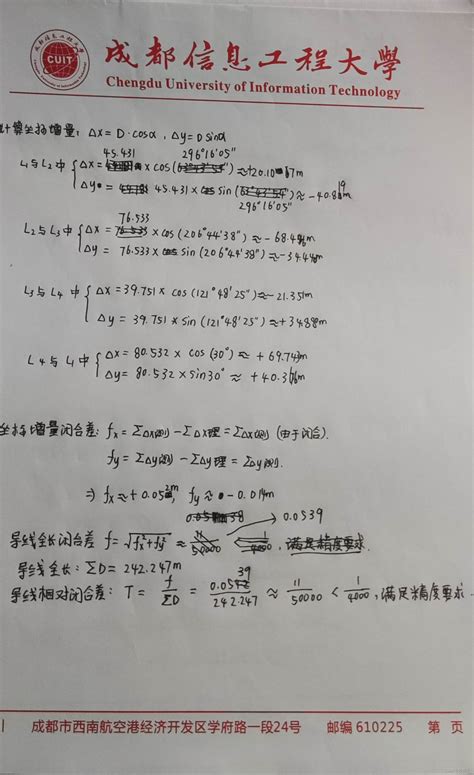 成都信息工程大學
CUIT
Chengdu University of Information Technology
计算坐标增量: Δx = D·cosα , Δy = D sinα
45.431 296°16'05"
L1与L2中 Δx = × cos( ) ≈ +20.10 m
Δy = 45.431 × sin( ) ≈ -40.8 m
296°16'05"
76.533
L2与L3中 Δx = × cos(206°44'38") ≈ -68.4 m
Δy = 76.533 × sin(206°44'38") ≈ -34.4 m
L3与L4中 Δx = 39.751 × cos(121°48'25") ≈ -21.351m
Δy = 39.751 × sin(121°48'25") ≈ +3 m
L4与L1中 Δx = 80.532 × cos(30°) ≈ +69.743m
Δy = 80.532 × sin30° ≈ +40.3 m
坐标增量闭合差: fx = ΣΔx测 - ΣΔx理 = ΣΔx测 (由于闭合).
fy = ΣΔy测 - ΣΔy理 = ΣΔy测.
⇒ fx ≈ +0.052m, fy ≈ -0.014m
0.0539
导线全长闭合差 f = √fx²+fy² ≈ 满足精度要求.
导线全长: ΣD = 242.247m
39
导线相对闭合差: T = f/ΣD = 0.05 /242.247 ≈ 11/50000 < 1/4000, 满足精度要求.
成都市西南航空港经济开发区学府路一段24号 邮编 610225 第 页